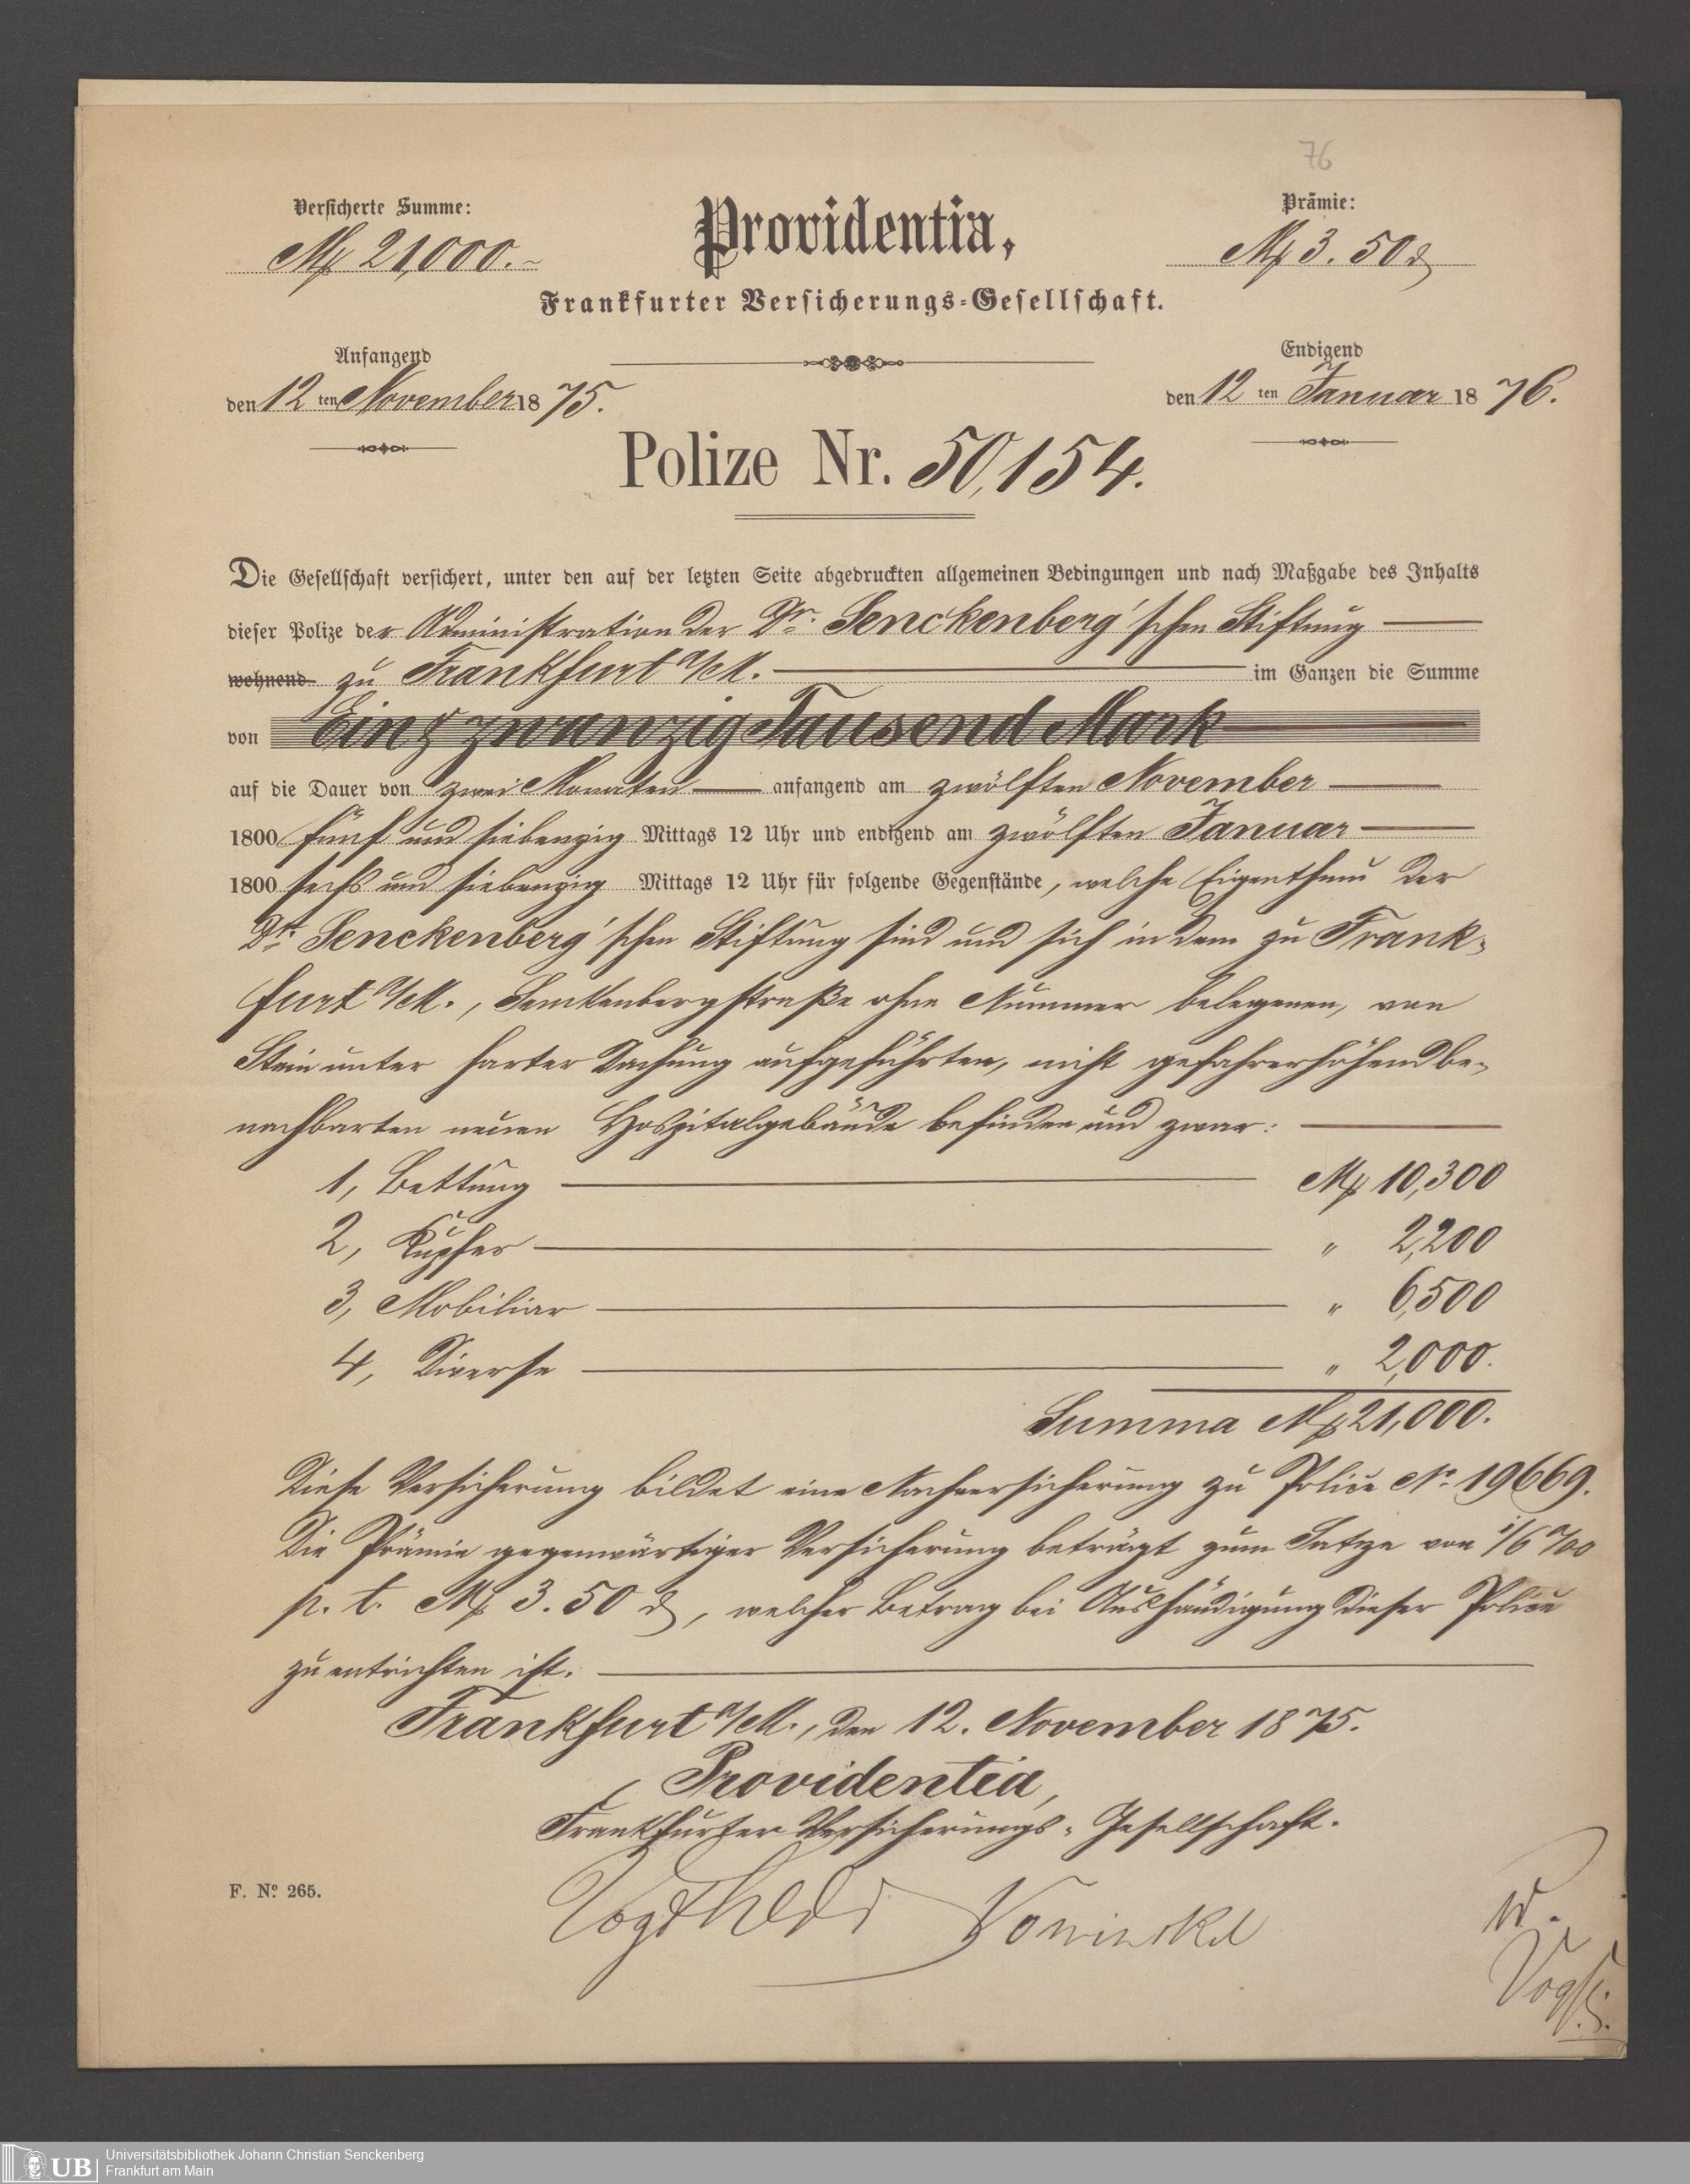 76
Versicherte Summe:
Mk 21,000.~
Providentia,
Prämie:
Mk 3. 50 ₰
Frankfurter Versicherungs-Gesellschaft.
Anfangend
den 12 ten November 1875.
Endigend
den 12 ten Januar 1876.
Polize Nr. 50,154.
Die Gesellschaft versichert, unter den auf der letzten Seite abgedruckten allgemeinen Bedingungen und nach Maßgabe des Inhalts
dieser Polize der Administration der Dr. Senckenberg'schen Stiftung
wohnend zu Frankfurt a/M. im Ganzen die Summe
von Ein & zwanzig Tausend Mark
auf die Dauer von zwei Monaten anfangend am zwölften November
1800 fünf und siebenzig Mittags 12 Uhr und endigend am zwölften Januar
1800 sechs und siebenzig Mittags 12 Uhr für folgende Gegenstände, welche Eigenthum der
Dr. Senckenberg'schen Stiftung sind und sich in dem zu Frank-
furt a/M., Senckenbergstraße ohne Nummer belegenen, von
Stein unter harter Dachung aufgeführten, nicht gefahrerhöhend be-
nachbarten neuen Hospitalgebäude befinden und zwar:
1, Bettung Mk 10,300
2, Kupfer " 2,200
3, Mobiliar " 6,500
4, Diverse " 2,000.
Summa Mk 21,000.
Diese Versicherung bildet eine Nachversicherung zu Police No. 19669.
Die Prämie gegenwärtiger Versicherung beträgt zum Satze von 1/6 ‰
p. t. Mk 3. 50 ₰, welcher Betrag bei Aushändigung dieser Police
zu entrichten ist.
Frankfurt a/M., den 12. November 1875.
Providentia,
Frankfurter Versicherungs-Gesellschaft.
F. No. 265.
UB
Universitätsbibliothek Johann Christian Senckenberg
Frankfurt am Main